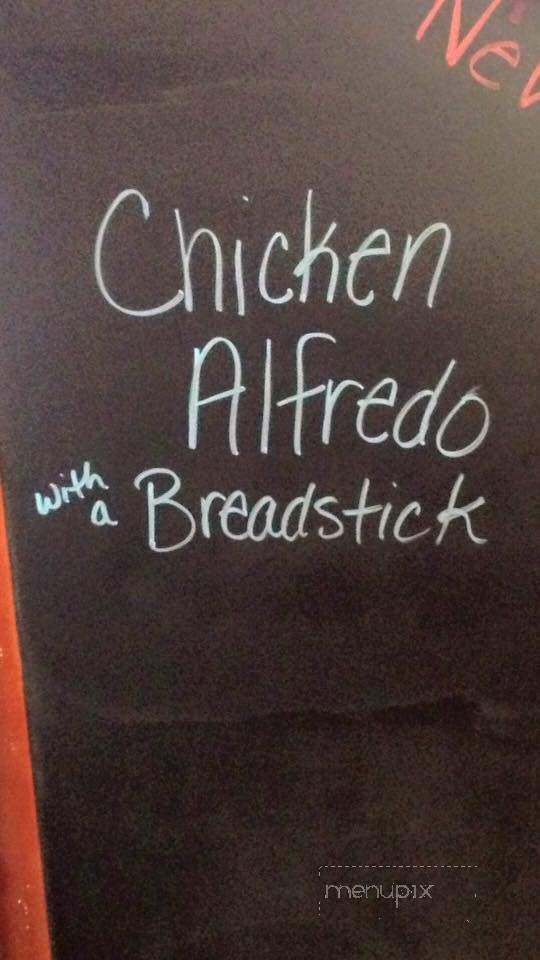 Chicken
Alfredo
with a Breadstick
menupix